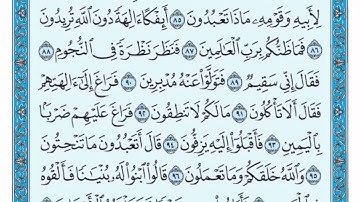 لِأَبِيهِ وَقَوْمِهِۦ مَاذَا تَعْبُدُونَ ٨٥ أَئِفْكًا ءَالِهَةً دُونَ ٱللَّهِ تُرِيدُونَ
٨٦ فَمَا ظَنُّكُم بِرَبِّ ٱلْعَٰلَمِينَ ٨٧ فَنَظَرَ نَظْرَةً فِى ٱلنُّجُومِ ٨٨
فَقَالَ إِنِّى سَقِيمٌ ٨٩ فَتَوَلَّوْا۟ عَنْهُ مُدْبِرِينَ ٩٠ فَرَاغَ إِلَىٰٓ ءَالِهَتِهِمْ
فَقَالَ أَلَا تَأْكُلُونَ ٩١ مَا لَكُمْ لَا تَنطِقُونَ ٩٢ فَرَاغَ عَلَيْهِمْ ضَرْبًۢا
بِٱلْيَمِينِ ٩٣ فَأَقْبَلُوٓا۟ إِلَيْهِ يَزِفُّونَ ٩٤ قَالَ أَتَعْبُدُونَ مَا تَنْحِتُونَ
٩٥ وَٱللَّهُ خَلَقَكُمْ وَمَا تَعْمَلُونَ ٩٦ قَالُوا۟ ٱبْنُوا۟ لَهُۥ بُنْيَٰنًا فَأَلْقُوهُ